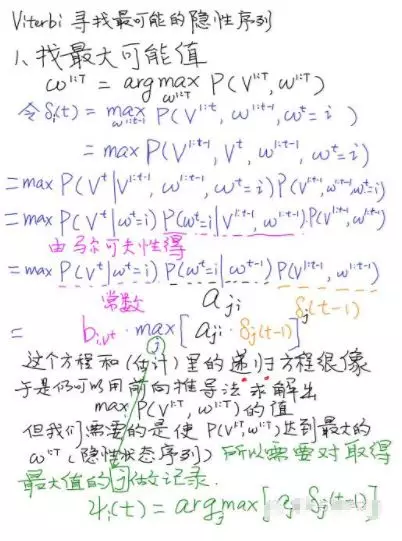 Viterbi 寻找最可能的隐性序列
1、找最大可能值
ω^{1:T} = argmax_{ω^{1:T}} P(V^{1:T}, ω^{1:T})
令 δ_i(t) = max_{ω^{1:t-1}} P(V^{1:t}, ω^{1:t-1}, ω^t=i)
= max P(V^{1:t-1}, V^t, ω^{1:t-1}, ω^t=i)
= max P(V^t|V^{1:t-1}, ω^{1:t-1}, ω^t=i) P(V^{1:t-1}, ω^{1:t-1}, ω^t=i)
= max P(V^t|ω^t=i) P(ω^t=i|V^{1:t-1}, ω^{1:t-1}) · P(V^{1:t-1}, ω^{1:t-1})
由马尔可夫性得
= max P(V^t|ω^t=i) P(ω^t=i|ω^{t-1}) P(V^{1:t-1}, ω^{1:t-1})
常数 a_{ji} δ_j(t-1)
= b_{i,v^t} · max_j [a_{ji} · δ_j(t-1)]
这个方程和(估计)里的递归方程很像
于是仍可以用前向推导法求解出
max P(V^{1:T}, ω^{1:T}) 的值
但我们需要的是使 P(V^{1:T}, ω^{1:T}) 达到最大的
ω^{1:T} (隐性状态序列) 所以需要对取得
最大值的 j 做记录.
Ψ_i(t) = argmax_j [ δ_j(t-1)]